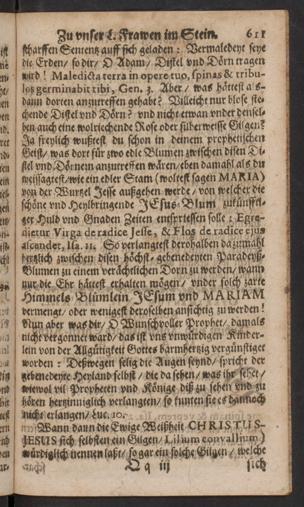 Zu vnser L. Frawen im Stein. 611
scharffen Sententz auff sich geladen: Vermaledeyt seye
die Erden/ so dir/ O Adam/ Distel vnd Dörn tragen
wird! Maledicta terra in opere tuo, spinas & tribu-
los germinabit tibi, Gen. 3. Aber/ was hättest als-
dann dorten anzutreffen gehabt? Villeicht nur blose ste-
chende Distel vnd Dörn? vnd nicht etwan vnder densel-
ben auch eine wolriechende Rose oder silberweisse Gilgen?
Ja freylich wußtest du schon in deinem prophetischen
Geist/ was dort für zwo edle Blumen zwischen disen Di-
stel vnd Dörnen anzutreffen wären/ eben damahl als du
weissagtest/ wie ein edler Stam (woltest sagen MARIA)
von der Wurtzel Jesse außgehen werde/ von welcher die
schöne vnd Heylbringende JEsus-Blum zukünffti-
ger Huld vnd Gnaden Zeiten entspriessen solle: Egre-
dietur Virga de radice Jesse, & Flos de radice ejus
ascendet, Isa. 11. So verlangtest derohalben dazumahl
hertzlich zwischen disen höchst-gebenedeyten Paradeyß-
Blumen zu einem verächtlichen Dorn zu werden/ wann
nur die Ehr hättest erhalten mögen/ vnder solch zarte
Himmels-Blümlein JEsum vnd MARIAM
vermengt/ oder wenigest deroselben ansichtig zu werden!
Nun aber was dir/ O Wunschvoller Prophet/ damals
nicht vergonnet ward/ das ist vns vnwürdigen Kinder-
lein von der Allgütigkeit Gottes barmhertzig vergünstiget
worden: Deßwegen selig die Augen seynd/ spricht der
gebenedeyte Heyland selbst/ die da sehen/ was ihr sehet/
wiewol vil Propheten vnd Könige diß zu sehen vnd zu
hören hertzinniglich verlangten/ so kunten sie es dannoch
nicht erlangen/ Luc. 10.
Wann dann die Ewige Weißheit CHRISTUS
JESUS sich selbsten ein Gilgen/ Lilium convallium)
würdiglich nennen laßt/ so gar ein solche Gilgen/ welche
Qq iij sich